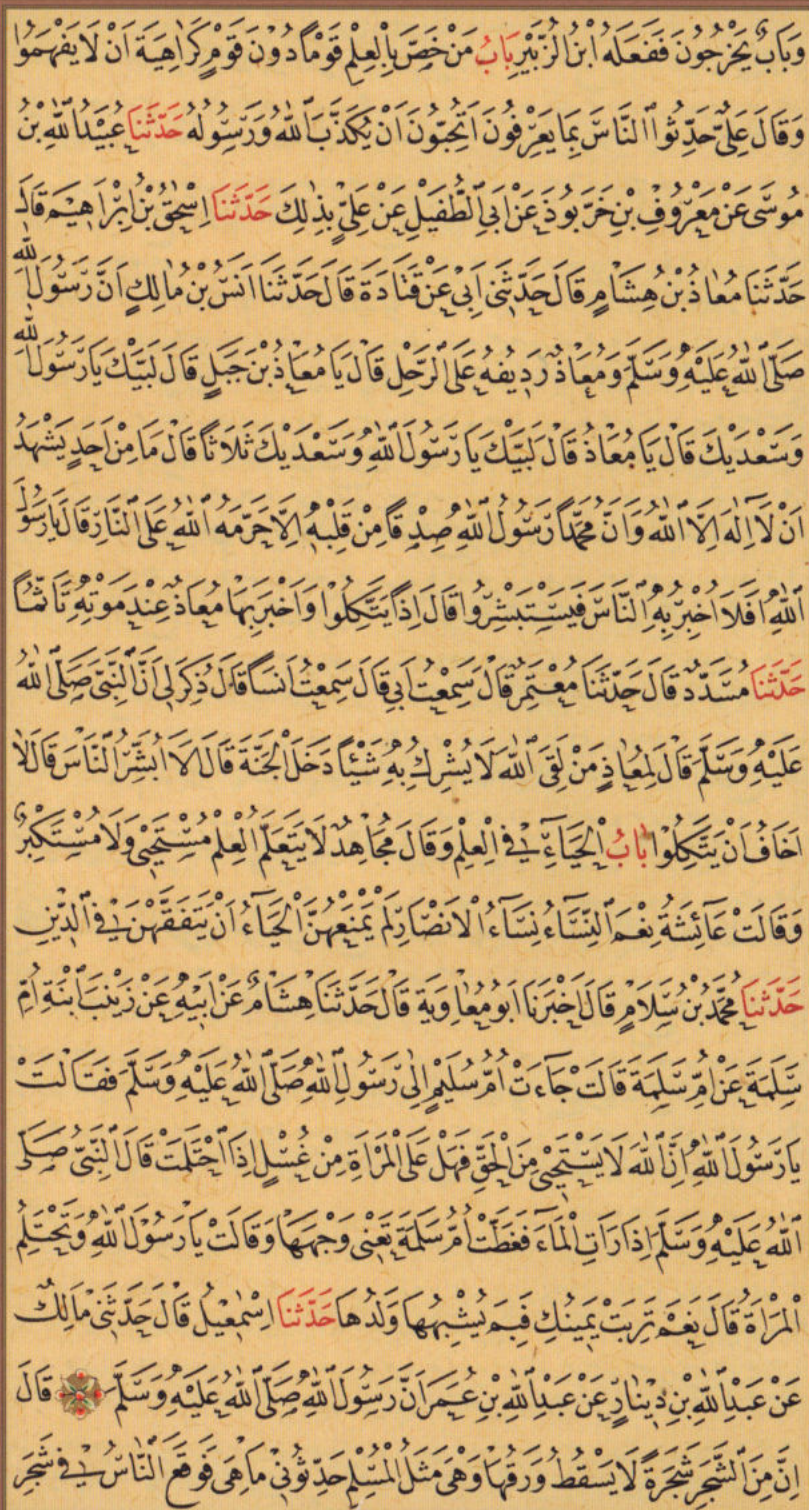 وَبَابٌ يَخْرُجُونَ فَفَعَلَهُ ابْنُ الزُّبَيْرِ بَابُ مَنْ خَصَّ بِالْعِلْمِ قَوْمًا دُونَ قَوْمٍ كَرَاهِيَةَ اَنْ لَا يَفْهَمُوا
وَقَالَ عَلِيٌّ حَدِّثُوا النَّاسَ بِمَا يَعْرِفُونَ اَتُحِبُّونَ اَنْ يُكَذَّبَ اللّٰهُ وَرَسُولُهُ حَدَّثَنَا عُبَيْدُ اللّٰهِ بْنُ
مُوسَى عَنْ مَعْرُوفِ بْنِ خَرَّبُوذَ عَنْ اَبِي الطُّفَيْلِ عَنْ عَلِيٍّ بِذٰلِكَ حَدَّثَنَا اِسْحٰقُ بْنُ اِبْرَاهِيمَ قَالَ
حَدَّثَنَا مُعَاذُ بْنُ هِشَامٍ قَالَ حَدَّثَنِي اَبِي عَنْ قَتَادَةَ قَالَ حَدَّثَنَا اَنَسُ بْنُ مَالِكٍ اَنَّ رَسُولَ اللّٰهِ
صَلَّى اللّٰهُ عَلَيْهِ وَسَلَّمَ وَمُعَاذٌ رَدِيفُهُ عَلَى الرَّحْلِ قَالَ يَا مُعَاذُ بْنَ جَبَلٍ قَالَ لَبَّيْكَ يَا رَسُولَ اللّٰهِ
وَسَعْدَيْكَ قَالَ يَا مُعَاذُ قَالَ لَبَّيْكَ يَا رَسُولَ اللّٰهِ وَسَعْدَيْكَ ثَلَاثًا قَالَ مَا مِنْ اَحَدٍ يَشْهَدُ
اَنْ لَا اِلٰهَ اِلَّا اللّٰهُ وَاَنَّ مُحَمَّدًا رَسُولُ اللّٰهِ صِدْقًا مِنْ قَلْبِهِ اِلَّا حَرَّمَهُ اللّٰهُ عَلَى النَّارِ قَالَ يَا رَسُولَ
اللّٰهِ اَفَلَا اُخْبِرُ بِهِ النَّاسَ فَيَسْتَبْشِرُوا قَالَ اِذًا يَتَّكِلُوا وَاَخْبَرَ بِهَا مُعَاذٌ عِنْدَ مَوْتِهِ تَاَثُّمًا
حَدَّثَنَا مُسَدَّدٌ قَالَ حَدَّثَنَا مُعْتَمِرٌ قَالَ سَمِعْتُ اَبِي قَالَ سَمِعْتُ اَنَسًا قَالَ ذُكِرَ لِي اَنَّ النَّبِيَّ صَلَّى اللّٰهُ
عَلَيْهِ وَسَلَّمَ قَالَ لِمُعَاذٍ مَنْ لَقِيَ اللّٰهَ لَا يُشْرِكُ بِهِ شَيْئًا دَخَلَ الْجَنَّةَ قَالَ اَلَا اُبَشِّرُ النَّاسَ قَالَ لَا
اَخَافُ اَنْ يَتَّكِلُوا بَابُ الْحَيَاءِ فِي الْعِلْمِ وَقَالَ مُجَاهِدٌ لَا يَتَعَلَّمُ الْعِلْمَ مُسْتَحْيِي وَلَا مُسْتَكْبِرٌ
وَقَالَتْ عَائِشَةُ نِعْمَ النِّسَاءُ نِسَاءُ الْاَنْصَارِ لَمْ يَمْنَعْهُنَّ الْحَيَاءُ اَنْ يَتَفَقَّهْنَ فِي الدِّينِ
حَدَّثَنَا مُحَمَّدُ بْنُ سَلَامٍ قَالَ اَخْبَرَنَا اَبُو مُعَاوِيَةَ قَالَ حَدَّثَنَا هِشَامٌ عَنْ اَبِيهِ عَنْ زَيْنَبَ ابْنَةِ اُمِّ
سَلَمَةَ عَنْ اُمِّ سَلَمَةَ قَالَتْ جَاءَتْ اُمُّ سُلَيْمٍ اِلَى رَسُولِ اللّٰهِ صَلَّى اللّٰهُ عَلَيْهِ وَسَلَّمَ فَقَالَتْ
يَا رَسُولَ اللّٰهِ اِنَّ اللّٰهَ لَا يَسْتَحْيِي مِنَ الْحَقِّ فَهَلْ عَلَى الْمَرْاَةِ مِنْ غُسْلٍ اِذَا احْتَلَمَتْ قَالَ النَّبِيُّ صَلَّى
اللّٰهُ عَلَيْهِ وَسَلَّمَ اِذَا رَاَتِ الْمَاءَ فَغَطَّتْ اُمُّ سَلَمَةَ تَعْنِي وَجْهَهَا وَقَالَتْ يَا رَسُولَ اللّٰهِ وَتَحْتَلِمُ
الْمَرْاَةُ قَالَ نَعَمْ تَرِبَتْ يَمِينُكِ فَبِمَ يُشْبِهُهَا وَلَدُهَا حَدَّثَنَا اِسْمٰعِيلُ قَالَ حَدَّثَنِي مَالِكٌ
عَنْ عَبْدِ اللّٰهِ بْنِ دِينَارٍ عَنْ عَبْدِ اللّٰهِ بْنِ عُمَرَ اَنَّ رَسُولَ اللّٰهِ صَلَّى اللّٰهُ عَلَيْهِ وَسَلَّمَ قَالَ
اِنَّ مِنَ الشَّجَرِ شَجَرَةً لَا يَسْقُطُ وَرَقُهَا وَهِيَ مَثَلُ الْمُسْلِمِ حَدِّثُونِي مَا هِيَ فَوَقَعَ النَّاسُ فِي شَجَرِ